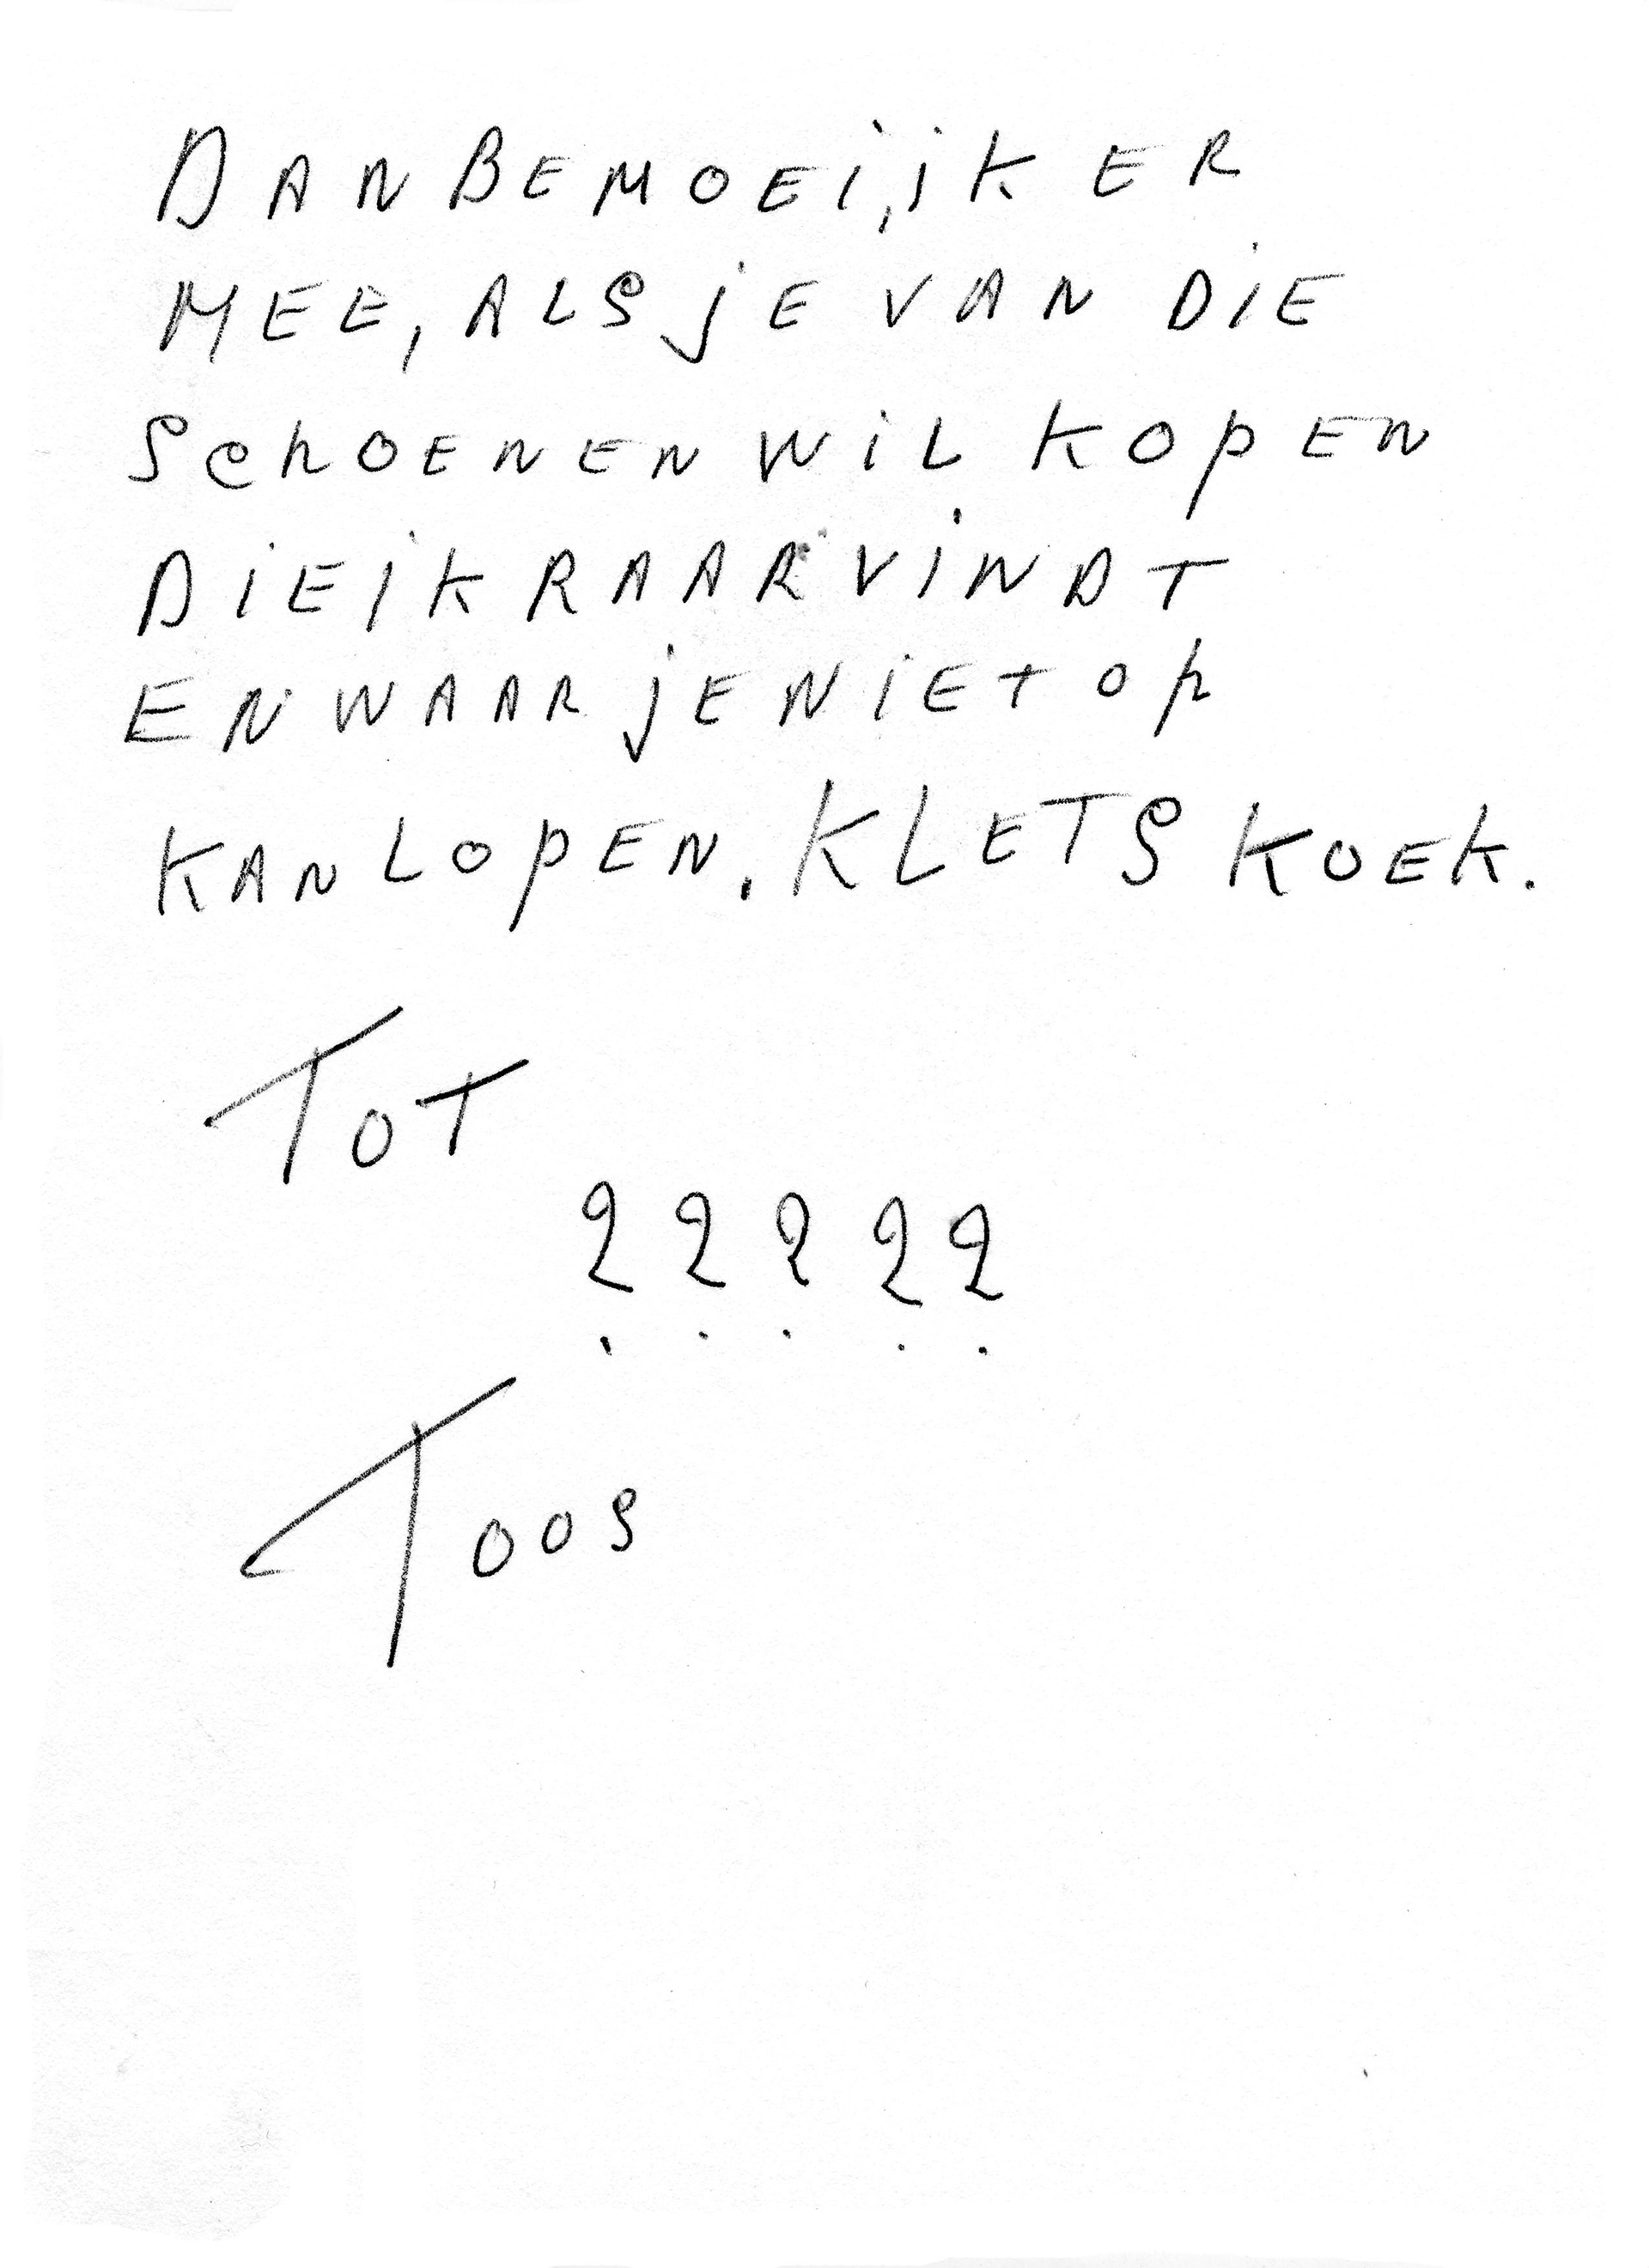 DAN BEMOEI, iK ER
MEE, ALS jE VAN DiE
SchOENEN WiL KOpEN
DiE iK RAAR ViNDT
EN WAAR jE NiET Op
KAN LOpEN. KLETSKOEK.
TOT
?????
TOOS